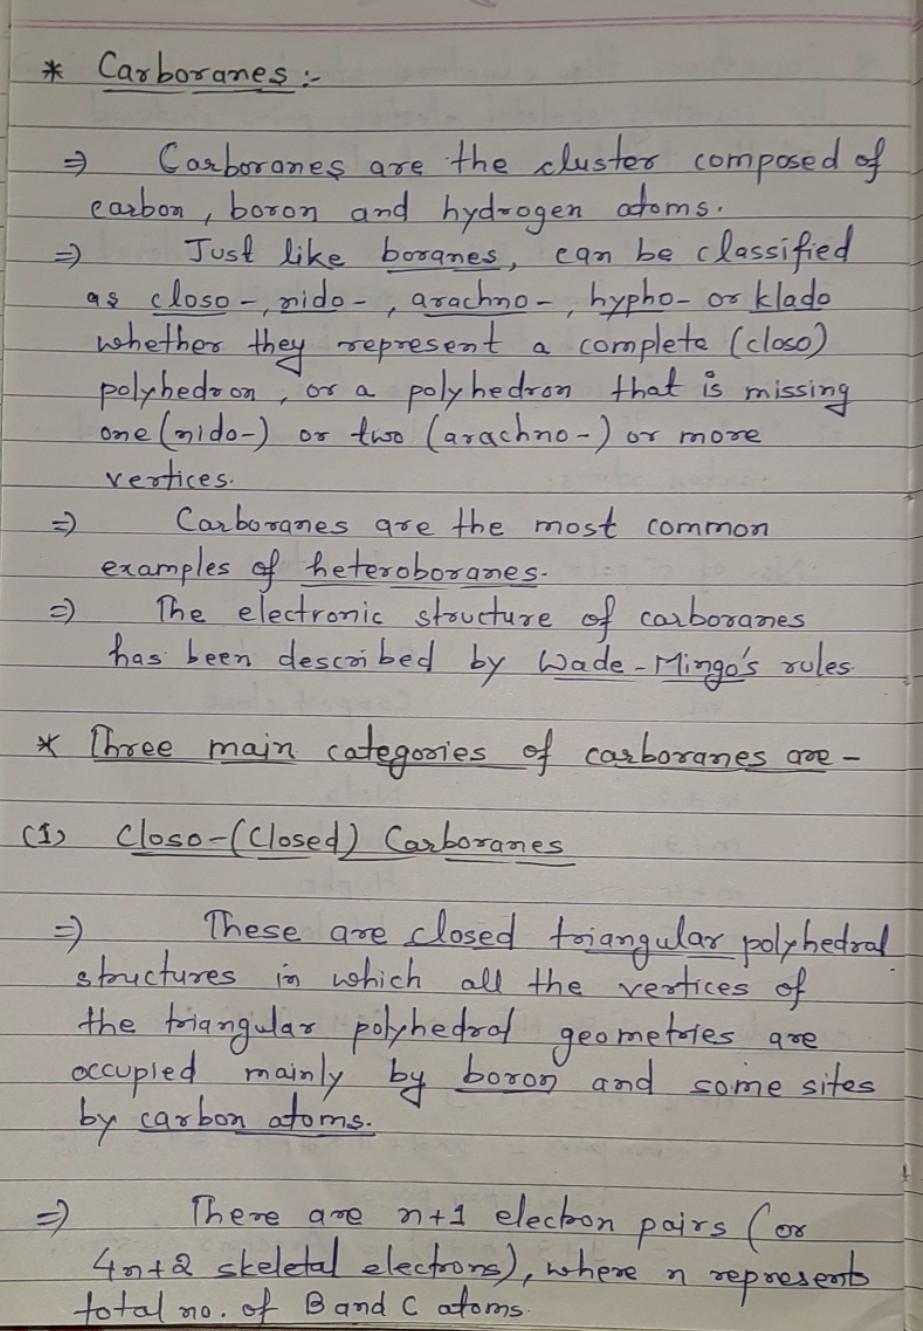 * Carboranes :-
⇒ Carboranes are the cluster composed of
carbon, boron and hydrogen atoms.
⇒ Just like boranes, can be classified
as closo-, nido-, arachno-, hypho- or klado
whether they represent a complete (closo)
polyhedron, or a polyhedron that is missing
one (nido-) or two (arachno-) or more
vertices.
⇒ Carboranes are the most common
examples of heteroboranes.
⇒ The electronic structure of carboranes
has been described by Wade-Mingo's rules.
* Three main categories of carboranes are -
(1) Closo-(Closed) Carboranes
⇒ These are closed triangular polyhedral
structures in which all the vertices of
the triangular polyhedral geometries are
occupied mainly by boron and some sites
by carbon atoms.
⇒ There are n+1 electron pairs (or
4n+2 skeletal electrons), where n represents
total no. of B and C atoms.